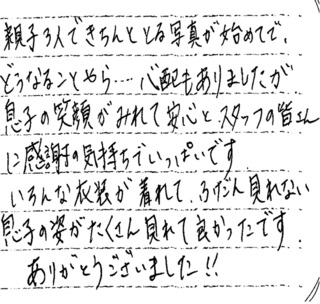 親子3人できちんととる写真が始めてで、
どうなることやら…. 心配もありましたが
息子の笑顔がみれて安心とスタッフの皆さん
に感謝の気持ちでいっぱいです
いろんな衣装が着れて、ふだん見れない
息子の姿がたくさん見れて良かったです.
ありがとうございました!!